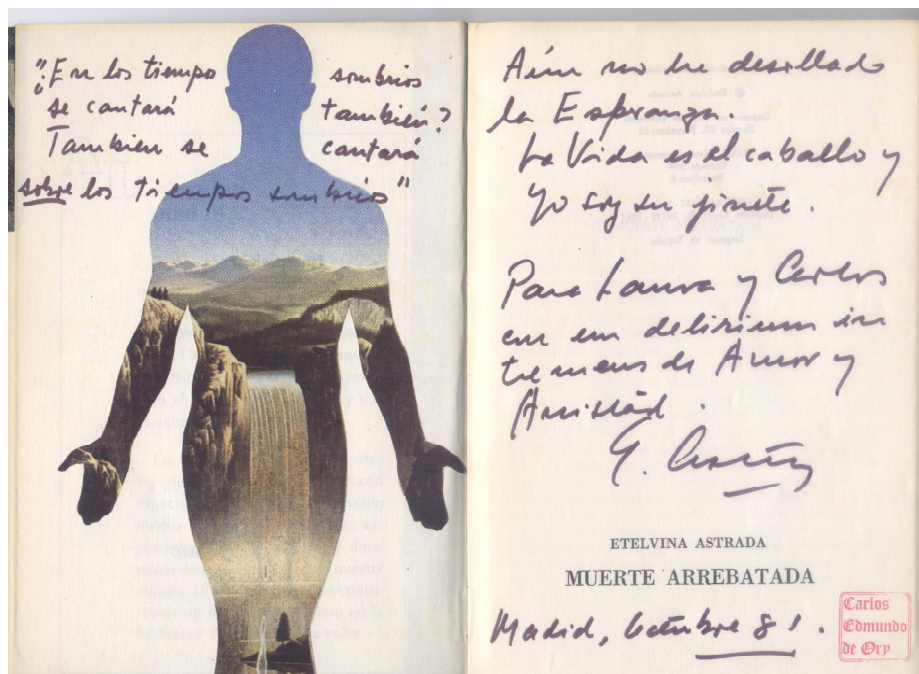 "¿En los tiempo sombrios
se cantará también?
Tambien se cantará
sobre los tiempos sombrios"
Aún no he desillado
la Esperanza.
La Vida es el caballo y
yo soy su jinete.
Para Laura y Carlos
en un delirium in
tremens de Amor y
Amistad.
E.
ETELVINA ASTRADA
MUERTE ARREBATADA
Madrid, Octubre 81.
Carlos
Edmundo
de Ory